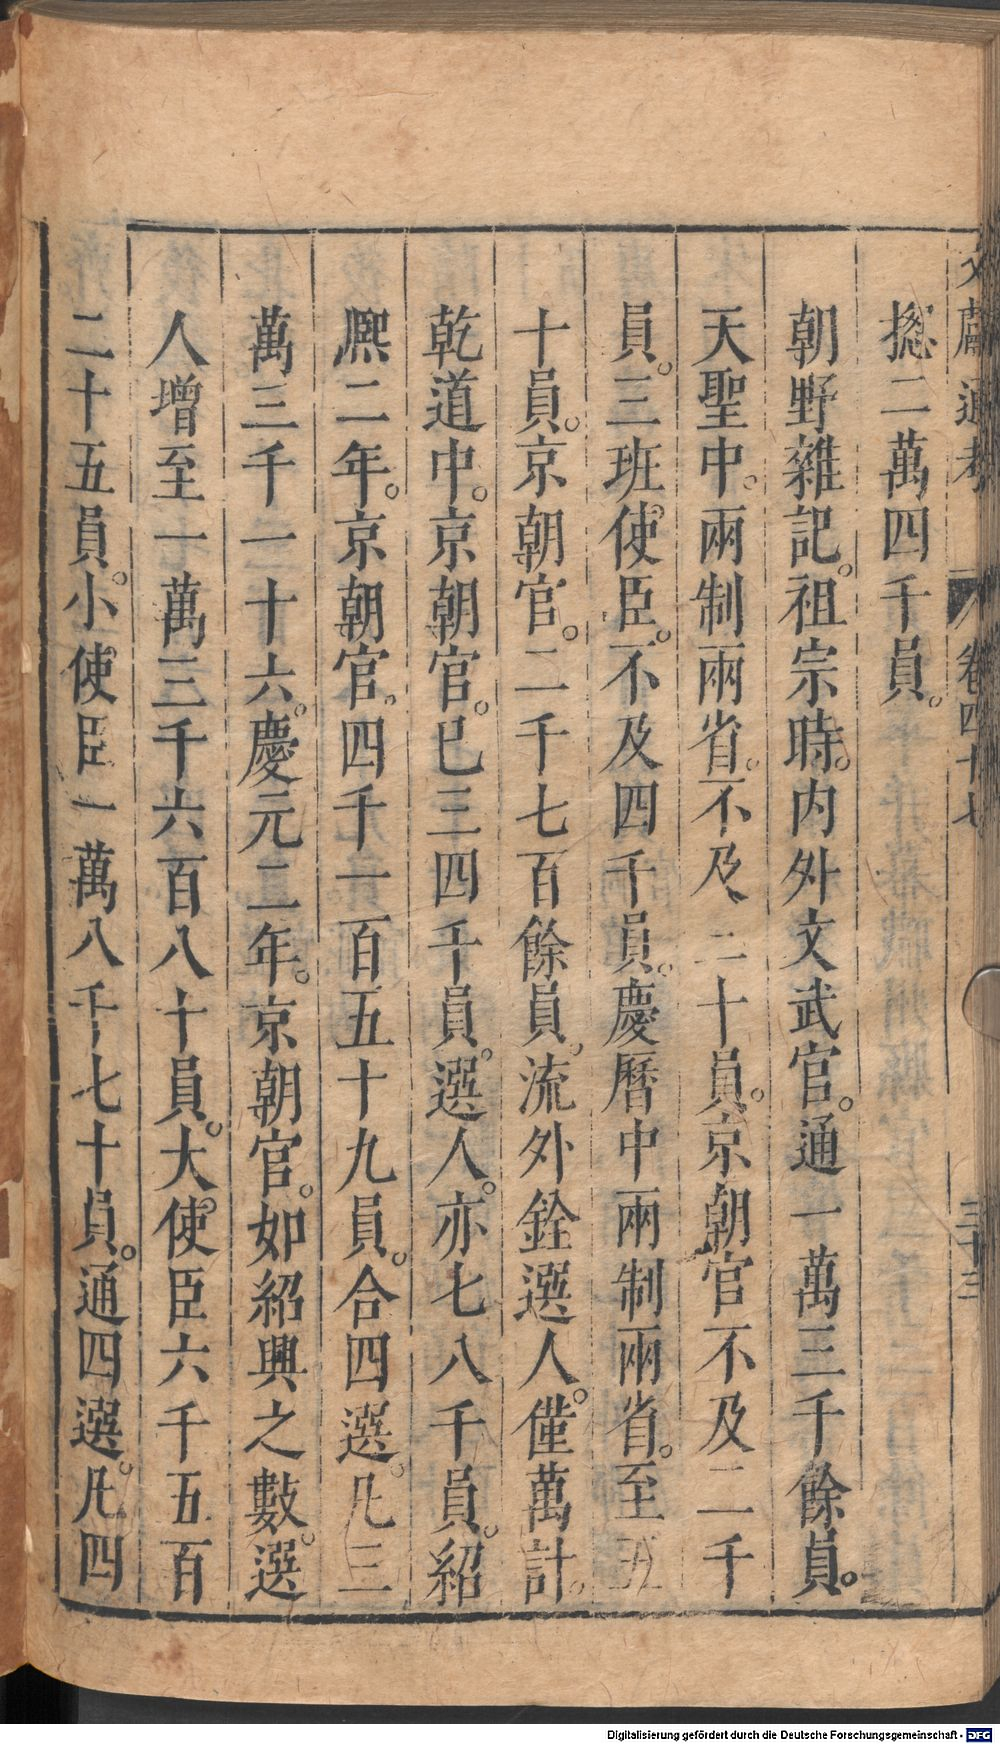 文獻通考 卷四十七 三十三
揔二萬四千員。
朝野雜記。祖宗時。内外文武官。通一萬三千餘員。
天聖中。兩制兩省。不及二十員。京朝官不及二千
員。三班使臣。不及四千員。慶曆中兩制兩省。至五
十員。京朝官。二千七百餘員。流外銓選人。僅萬計。
乾道中。京朝官。已三四千員。選人。亦七八千員。紹
熙二年。京朝官。四千一百五十九員。合四選。凡三
萬三千一十六。慶元二年。京朝官。如紹興之數。選
人增至一萬三千六百八十員。大使臣六千五百
二十五員。小使臣一萬八千七十員。通四選。凡四
Digitalisierung gefördert durch die Deutsche Forschungsgemeinschaft - DFG